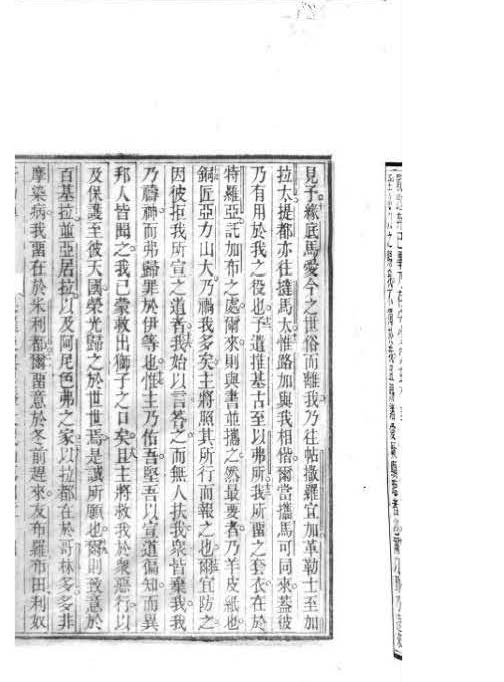 見予緣底馬愛今之世俗而離我乃往帖撒羅宜加革勒士至加
拉太提都亦往撻馬大惟路加與我相偕爾當攜馬可同來蓋彼
乃有用於我之役也予遣推基古至以弗所我所畱之套衣在於
特羅亞託加布之處爾來則與書並攜之然最要者乃羊皮紙也
銅匠亞力山大乃禍我多矣主將照其所行而報之也爾宜防之
因彼拒我所宣之道者我始以言答之而無人扶我衆皆棄我我
乃禱神而弗歸罪於伊等也惟主乃佑吾堅吾以宣道徧知而異
邦人皆聞之我已蒙救出獅子之口矣且主將救我於衆惡行以
及保護至彼天國榮光歸之於世世焉是誠所願也爾則致意於
百基拉並亞居拉以及阿尼色弗之家以拉都在於哥林多多非
摩染病我畱在於米利都爾畱意於冬前趕來友布羅布田利奴